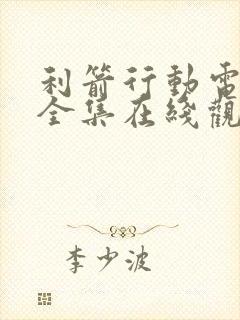 利箭行動電
全集在綫觀
李少波